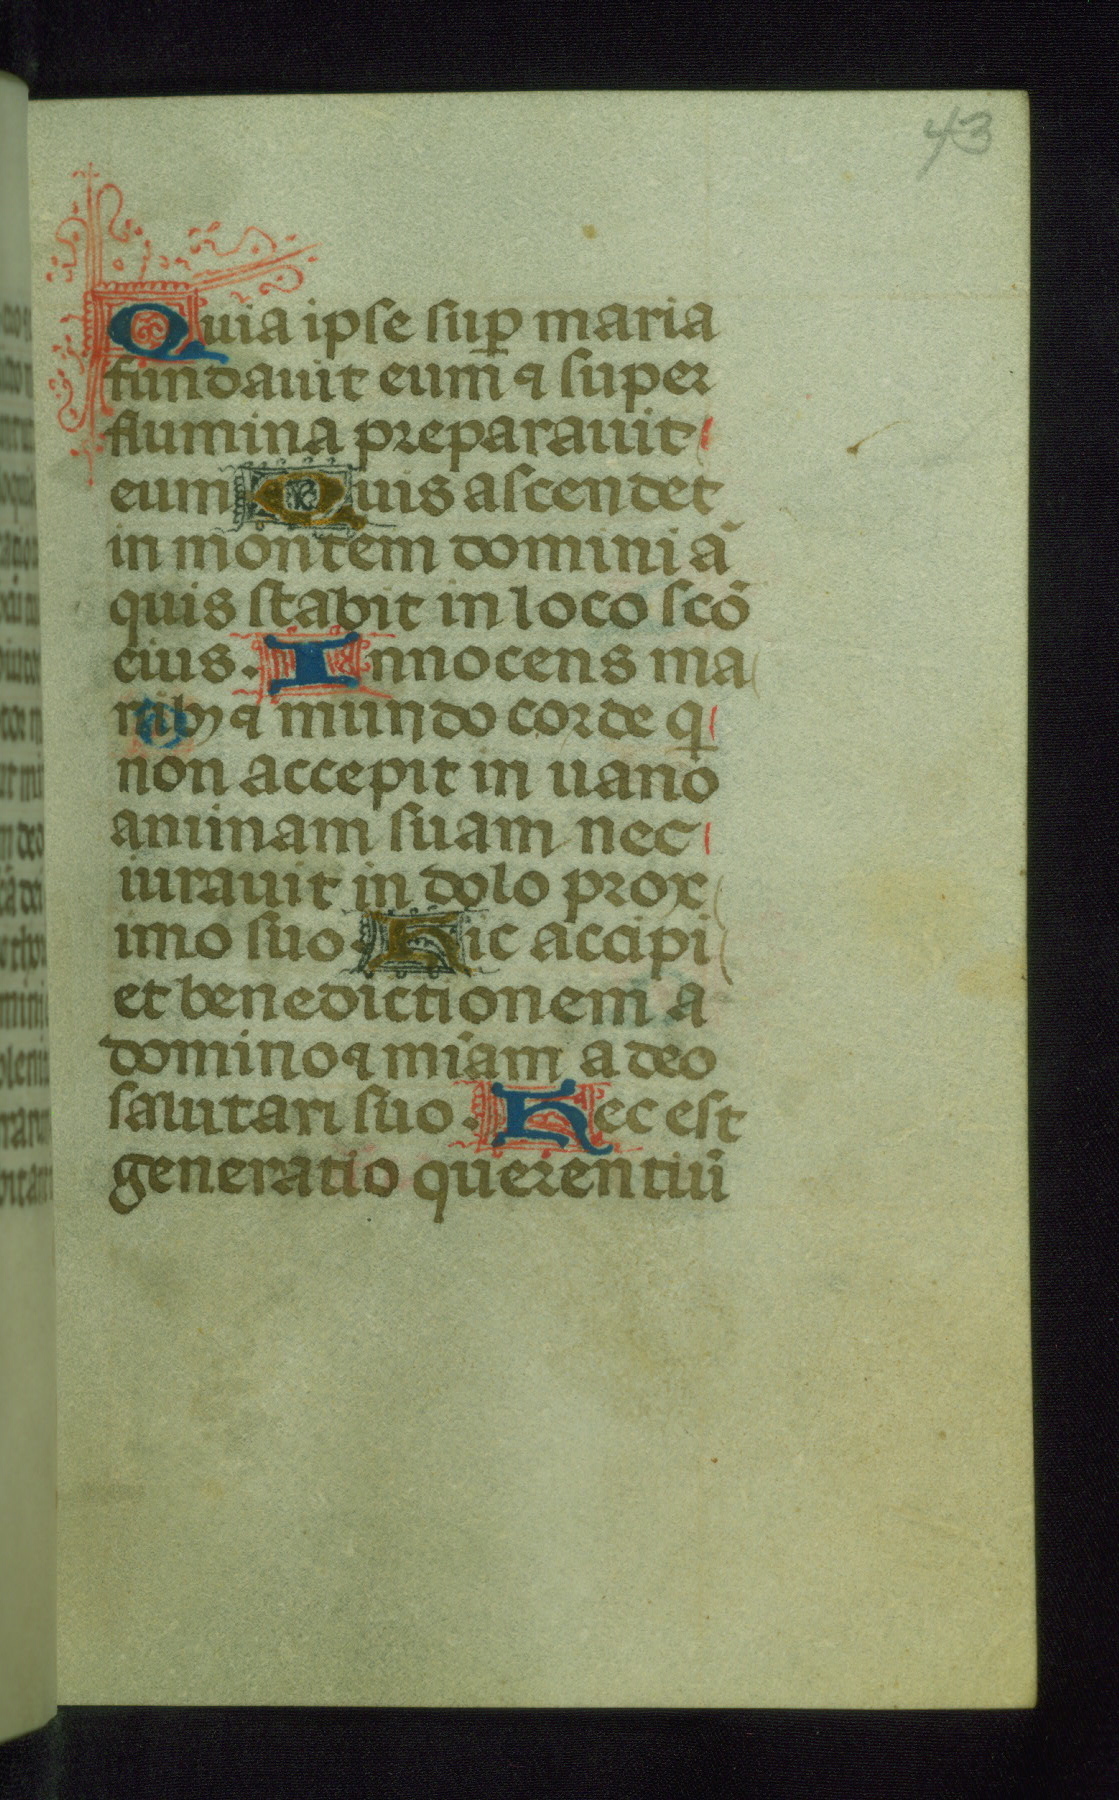 43
Quia ipse sup̱ maria
fundauit eum̄ ⁊ super
flumina preparauit
eum Quis ascendet
in montem domini ā
quis stabit in loco scō
eius. Innocens ma
nibꝫ ⁊ mundo corde q
non accepit in uano
animam suam nec
iurauit in dolo prox
imo suo. Hic accipi
et benedictionem a
domino ⁊ mīam a deo
salutari suo. Hec est
generatio querentiū